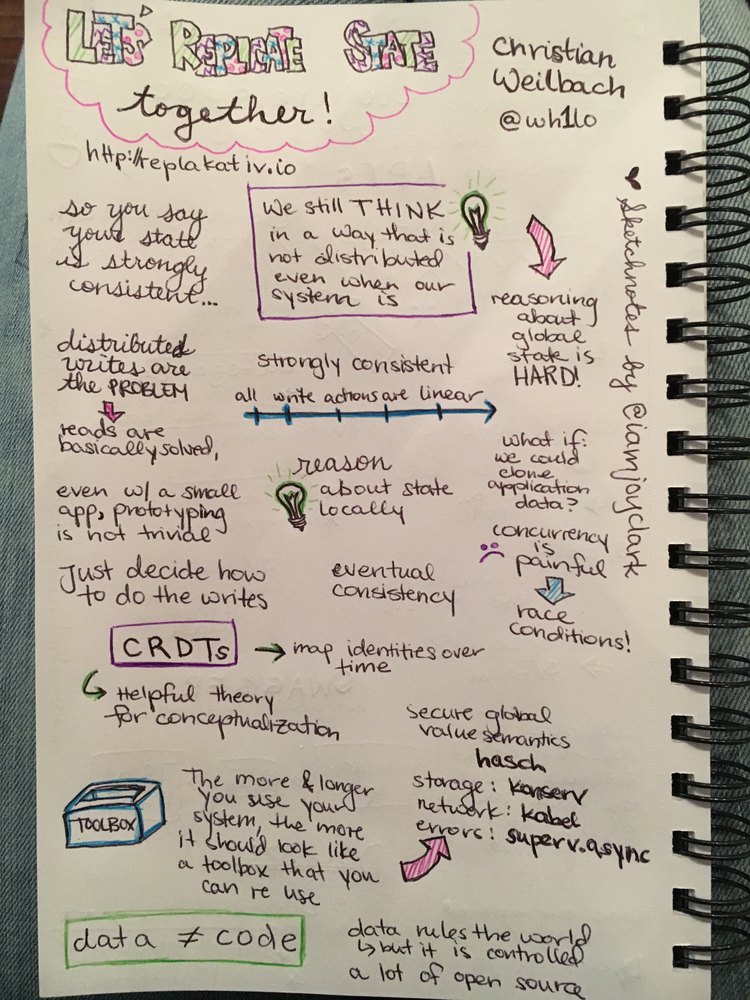 LET'S REPLICATE STATE
together!
Christian
Weilbach
@wh1lo
http://replakativ.io
so you say
your state
is strongly
consistent...
We still THINK
in a way that is
not distributed
even when our
system is
reasoning
about
global
state is
HARD!
distributed
writes are
the PROBLEM
reads are
basically solved,
strongly consistent
all write actions are linear
even w/ a small
app, prototyping
is not trivial
reason
about state
locally
what if:
we could
clone
application
data?
concurrency
is
painful
race
conditions!
Just decide how
to do the writes
eventual
consistency
CRDTs
map identities over
time
Helpful theory
for conceptualization
secure global
value semantics
hasch
storage: konserv
network: kabel
errors: superv.async
TOOLBOX
The more & longer
you use your
system, the more
it should look like
a toolbox that you
can re use
data ≠ code
data rules the world
but it is controlled
a lot of open source
Sketchnotes by @iamjoyclark